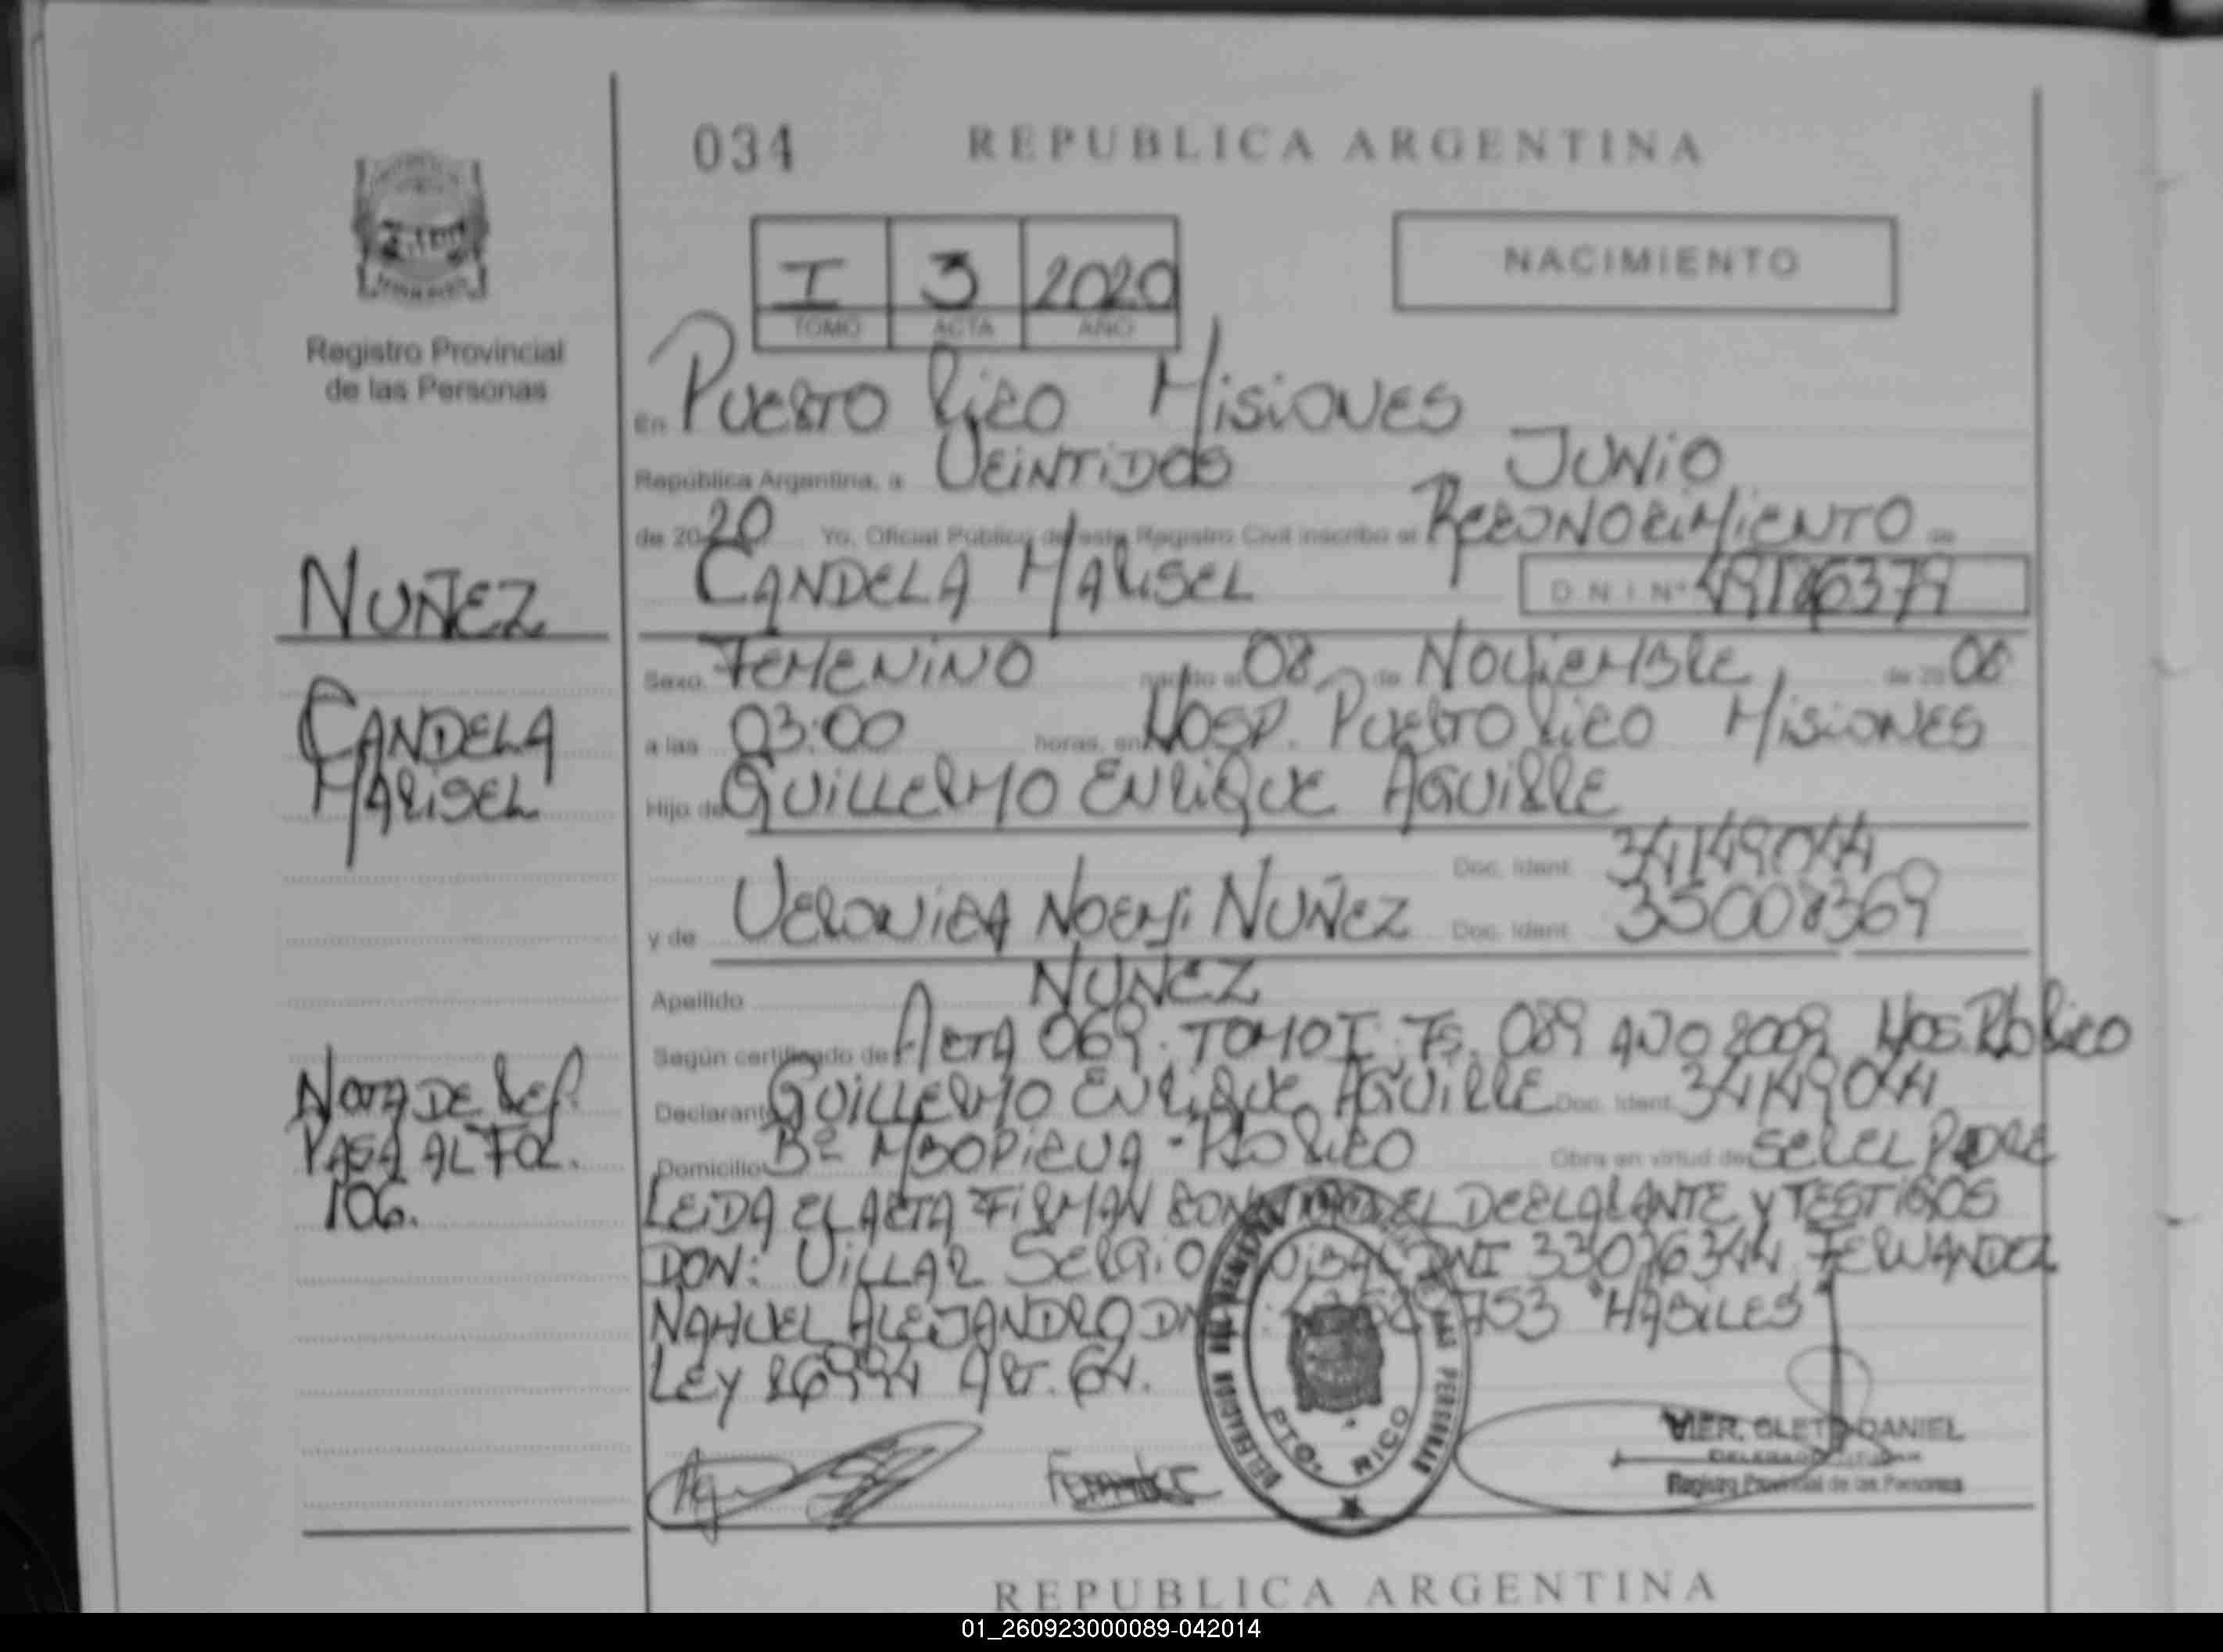 034 REPUBLICA ARGENTINA
I 3 2020
TOMO ACTA AÑO
NACIMIENTO
Registro Provincial
de las Personas
En PUERTO RICO MISIONES
República Argentina, a VEINTIDOS JUNIO
de 2020 Yo, Oficial Público de este Registro Civil inscribo el RECONOCIMIENTO de
CANDELA MARISEL D N I Nº
NUÑEZ
CANDELA
MARISEL
Sexo FEMENINO nacido el 08 de NOVIEMBRE de 20 08
a las 03:00 horas, en HOSP. PUERTO RICO MISIONES
Hijo de GUILLERMO ENRIQUE AGUIRRE
Doc. Ident. 34149044
y de VERONICA NOEMI NUÑEZ Doc. Ident. 35008369
Apellido NUÑEZ
Según certificado de ACTA 069. TOMO I. Fs. 089 AÑO 2009 HOS. PtO RICO
Declarante GUILLERMO ENRIQUE AGUIRRE Doc. Ident. 34149044
Domicilio Bº MBOPICUA - PtO RICO Obra en virtud de SER EL PADRE
NOTA DE REF.
PASA AL FOL.
106.
LEIDA EL ACTA FIRMAN EL DECLARANTE Y TESTIGOS
DON: VILLAR SERGIO DNI 33076344 FERNANDEZ
NAHUEL ALEJANDRO 753 "HABILES"
LEY 26994 ART. 64.
PTO. RICO
VIER, CLETO DANIEL
Registro Provincial de las Personas
REPUBLICA ARGENTINA
01_260923000089-042014